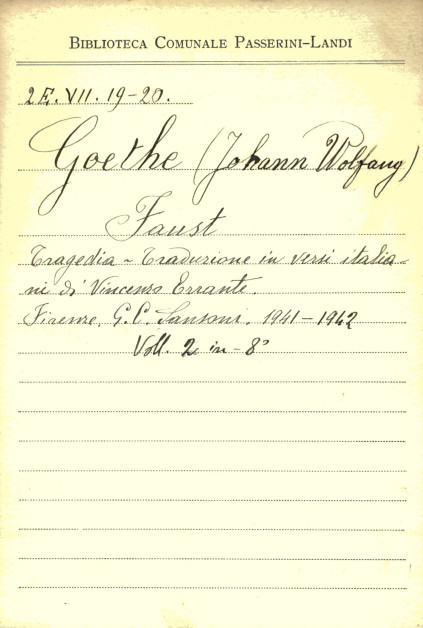 BIBLIOTECA COMUNALE PASSERINI-LANDI
2E. VII. 19-20.
Goethe (Johann Wolfang)
Faust
Tragedia - Traduzione in versi italia-
ni di Vincenzo Errante.
Firenze, G. C. Sansoni. 1941-1942
Voll. 2 in-8°